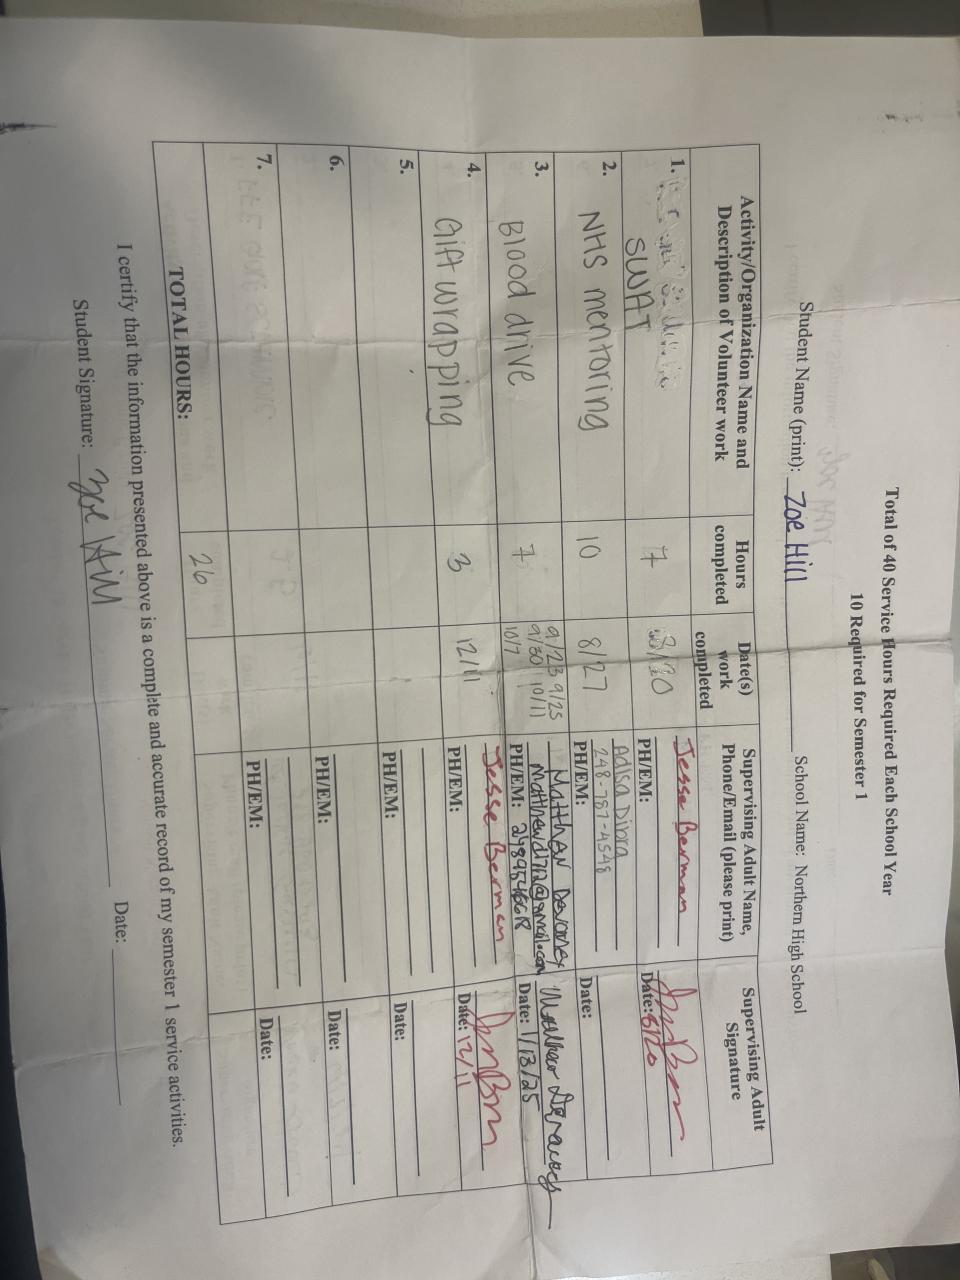 Total of 40 Service Hours Required Each School Year
10 Required for Semester 1
Student Name (print): Zoe Hill School Name: Northern High School
Activity/Organization Name and Description of Volunteer work
Hours completed
Date(s) work completed
Supervising Adult Name, Phone/Email (please print)
Supervising Adult Signature
1.
SWAT
7
8/20
Jesse Berman
PH/EM:
Date: 8/20
2.
NHS mentoring
10
8/27
Adisa Dibra
248-787-4548
PH/EM:
Date:
3.
Blood drive
7
9/23 9/25
9/30 10/11
10/7
Matthew
PH/EM:
Date: 1/13/25
4.
Gift wrapping
3
12/11
Jesse Berman
PH/EM:
Date: 12/11
5.
PH/EM:
Date:
6.
PH/EM:
Date:
7.
PH/EM:
Date:
TOTAL HOURS: 26
I certify that the information presented above is a complete and accurate record of my semester 1 service activities.
Student Signature: Zoe Hill Date: